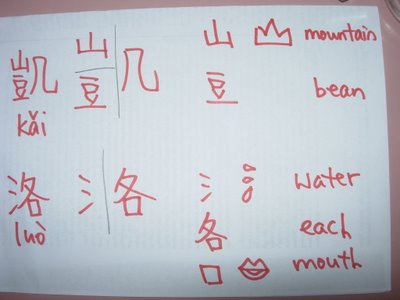 凱 山 几 山 mountain
豆 豆 bean
kǎi
洛 氵 各 氵 water
luò 各 each
口 mouth